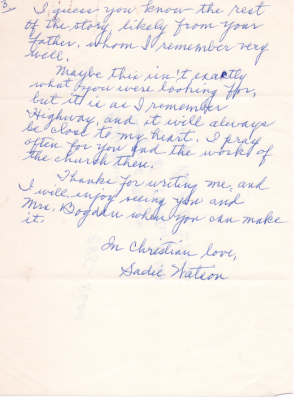 3.
I guess you know the rest
of the story likely from your
father, whom I remember very
well.
Maybe this isn't exactly
what you were looking for,
but it is as I remember
Highway, and it will always
be close to my heart. I pray
often for you and the work of
the church there.
Thanks for writing me, and
I will enjoy seeing you and
Mrs. Bogdan when you can make
it.
In Christian love,
Sadie Watson